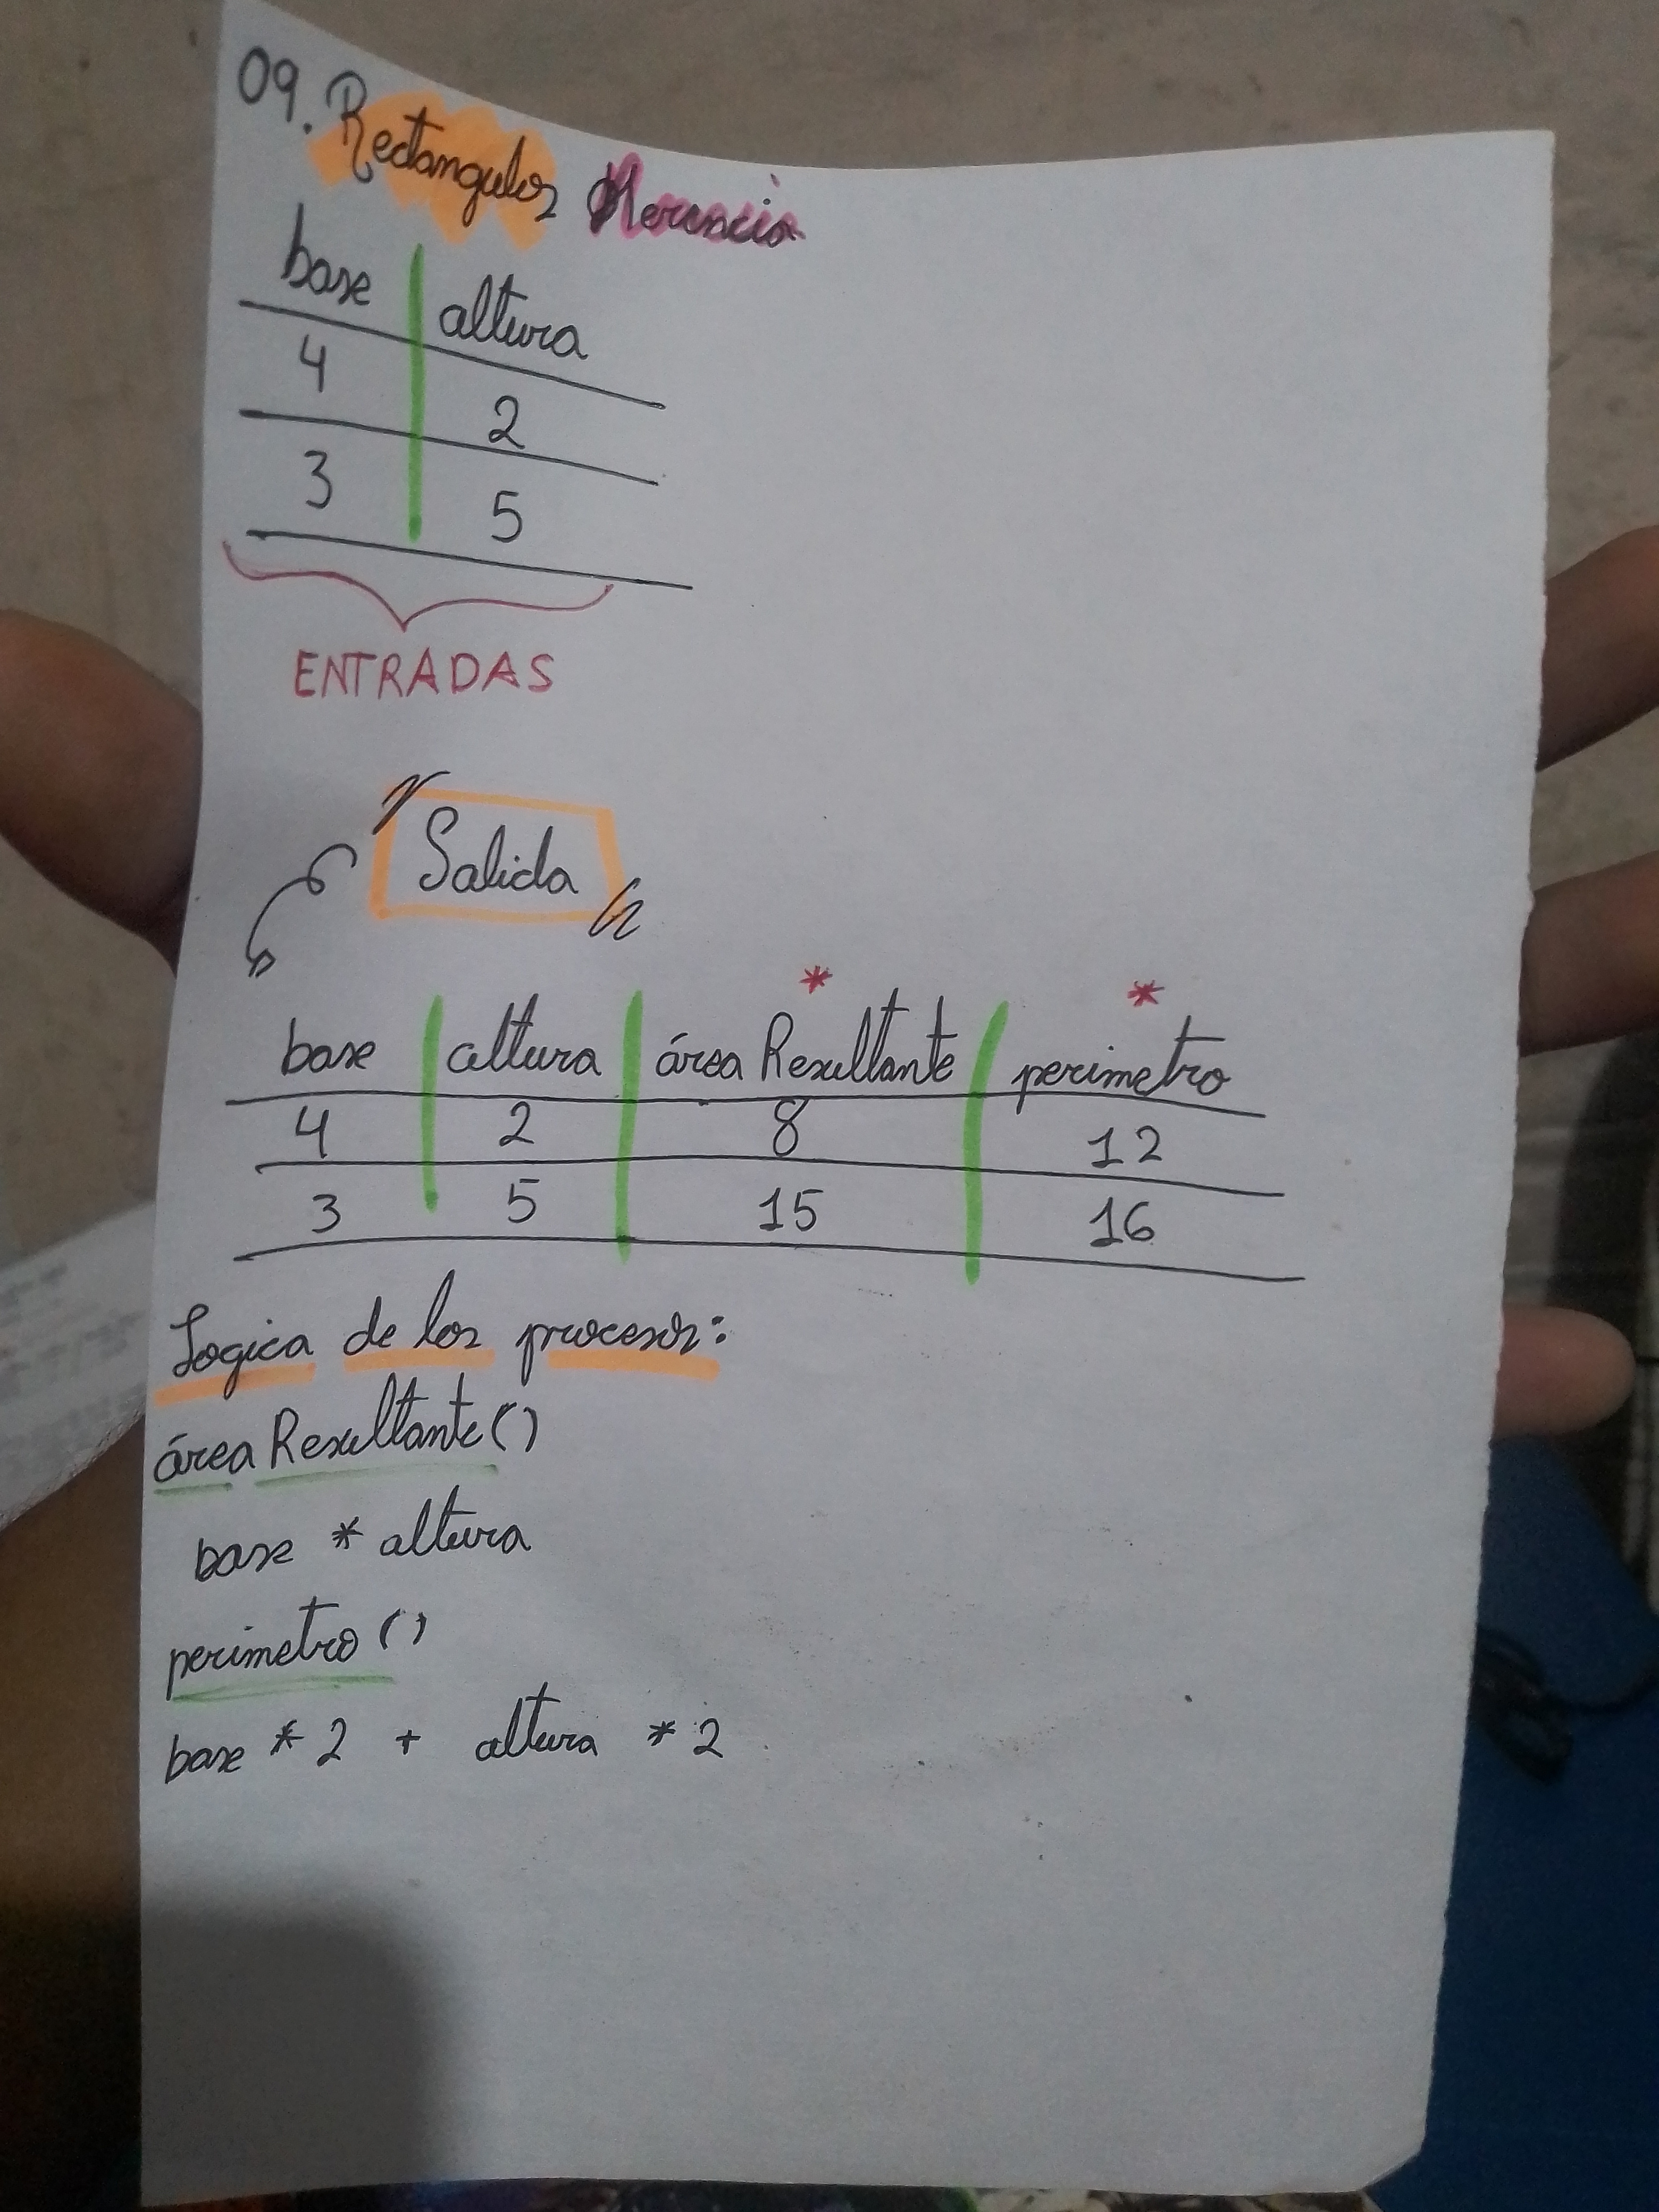 09. Rectangulos Herencia
base altura
4 2
3 5
ENTRADAS
Salida
* *
base altura área Resultante perimetro
4 2 8 12
3 5 15 16
Logica de los procesos:
área Resultante()
base * altura
perimetro ()
base * 2 + altura * 2